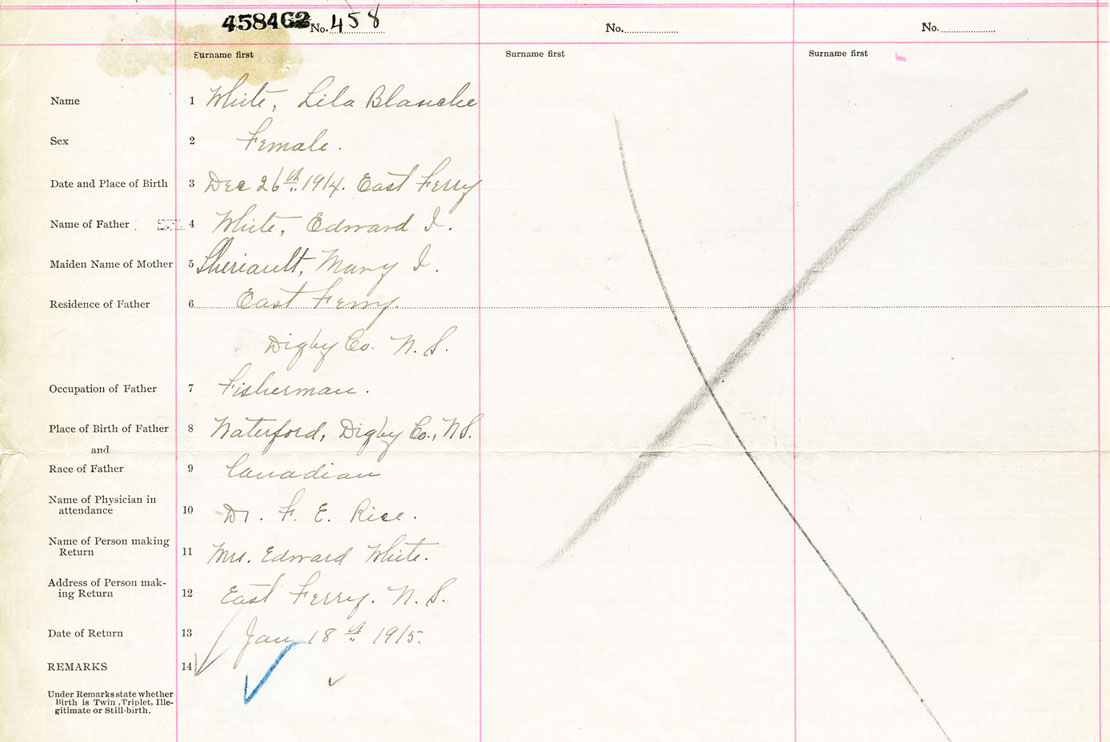 458462 No. 458 No. No.
Surname first Surname first Surname first
Name 1 White, Lila Blanche
Sex 2 Female.
Date and Place of Birth 3 Dec 26th 1914. East Ferry
Name of Father 4 White, Edward I.
Maiden Name of Mother 5 Theriault, Mary I.
Residence of Father 6 East Ferry.
Digby Co. N. S.
Occupation of Father 7 Fisherman.
Place of Birth of Father 8 Waterford, Digby Co., N.S.
and
Race of Father 9 Canadian
Name of Physician in
attendance 10 Dr. F. E. Rice.
Name of Person making
Return 11 Mrs. Edward White.
Address of Person mak-
ing Return 12 East Ferry. N. S.
Date of Return 13 Jan 18th 1915.
REMARKS 14
Under Remarks state whether
Birth is Twin, Triplet, Ille-
gitimate or Still-birth.